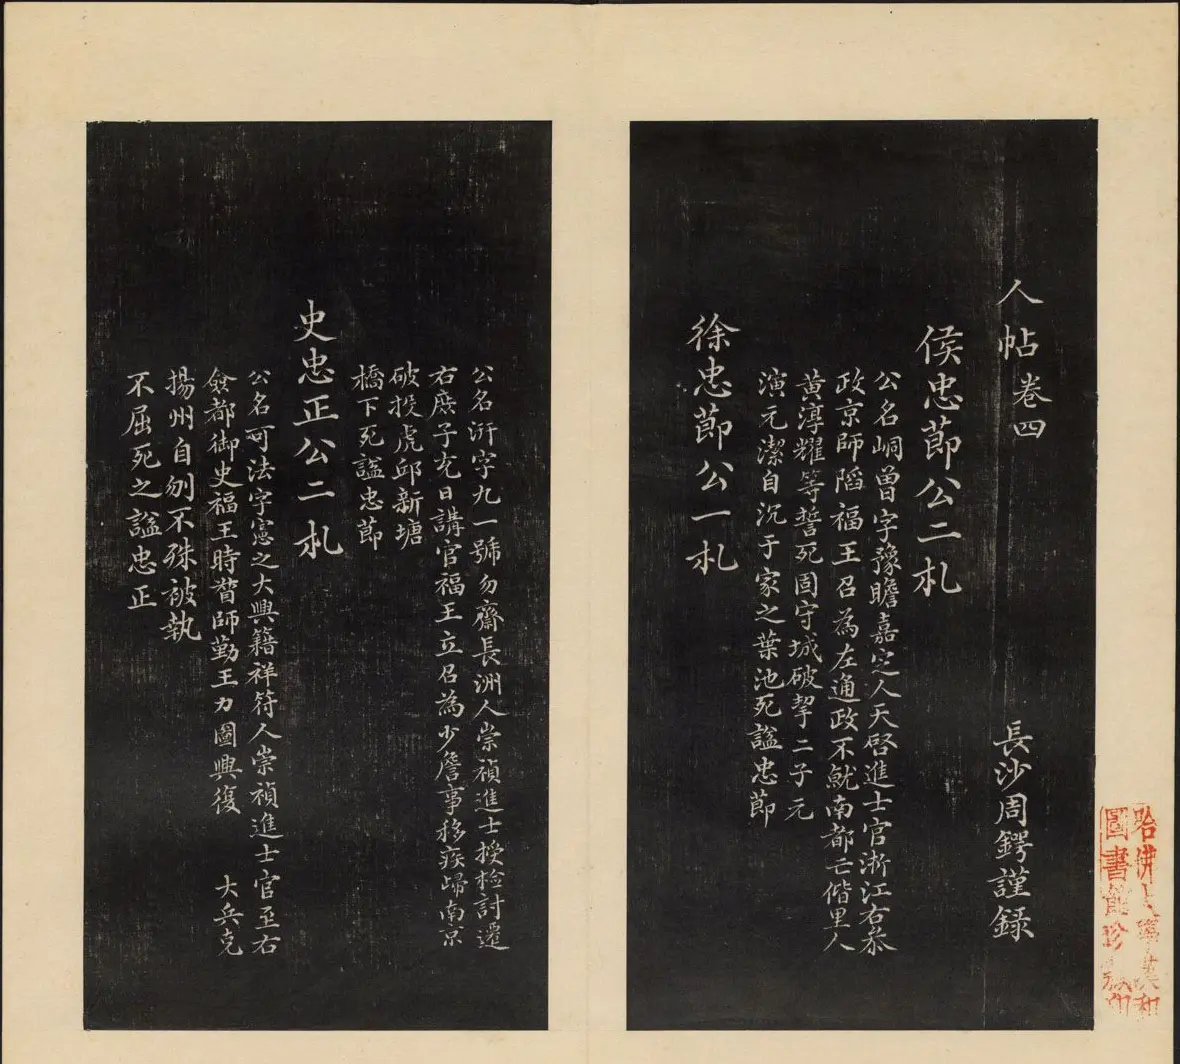 人帖卷四
長沙周鍔謹録
侯忠節公二札
公名峒曽字豫瞻嘉定人天啓進士官浙江右叅
政京師陷福王召為左通政不就南都亡偕里人
黃淳耀等誓死固守城破挈二子元
演元潔自沉于家之葉池死謚忠節
徐忠節公一札
公名汧字九一號勿齋長洲人崇禎進士授檢討遷
右庶子充日講官福王立召為少詹事移疾歸南京
破投虎邱新塘
橋下死謚忠節
史忠正公二札
公名可法字憲之大興籍祥符人崇禎進士官至右
僉都御史福王時督師勤王力圖興復 大兵克
揚州自刎不殊被執
不屈死之謚忠正
哈佛大學漢和
圖書館珍藏印